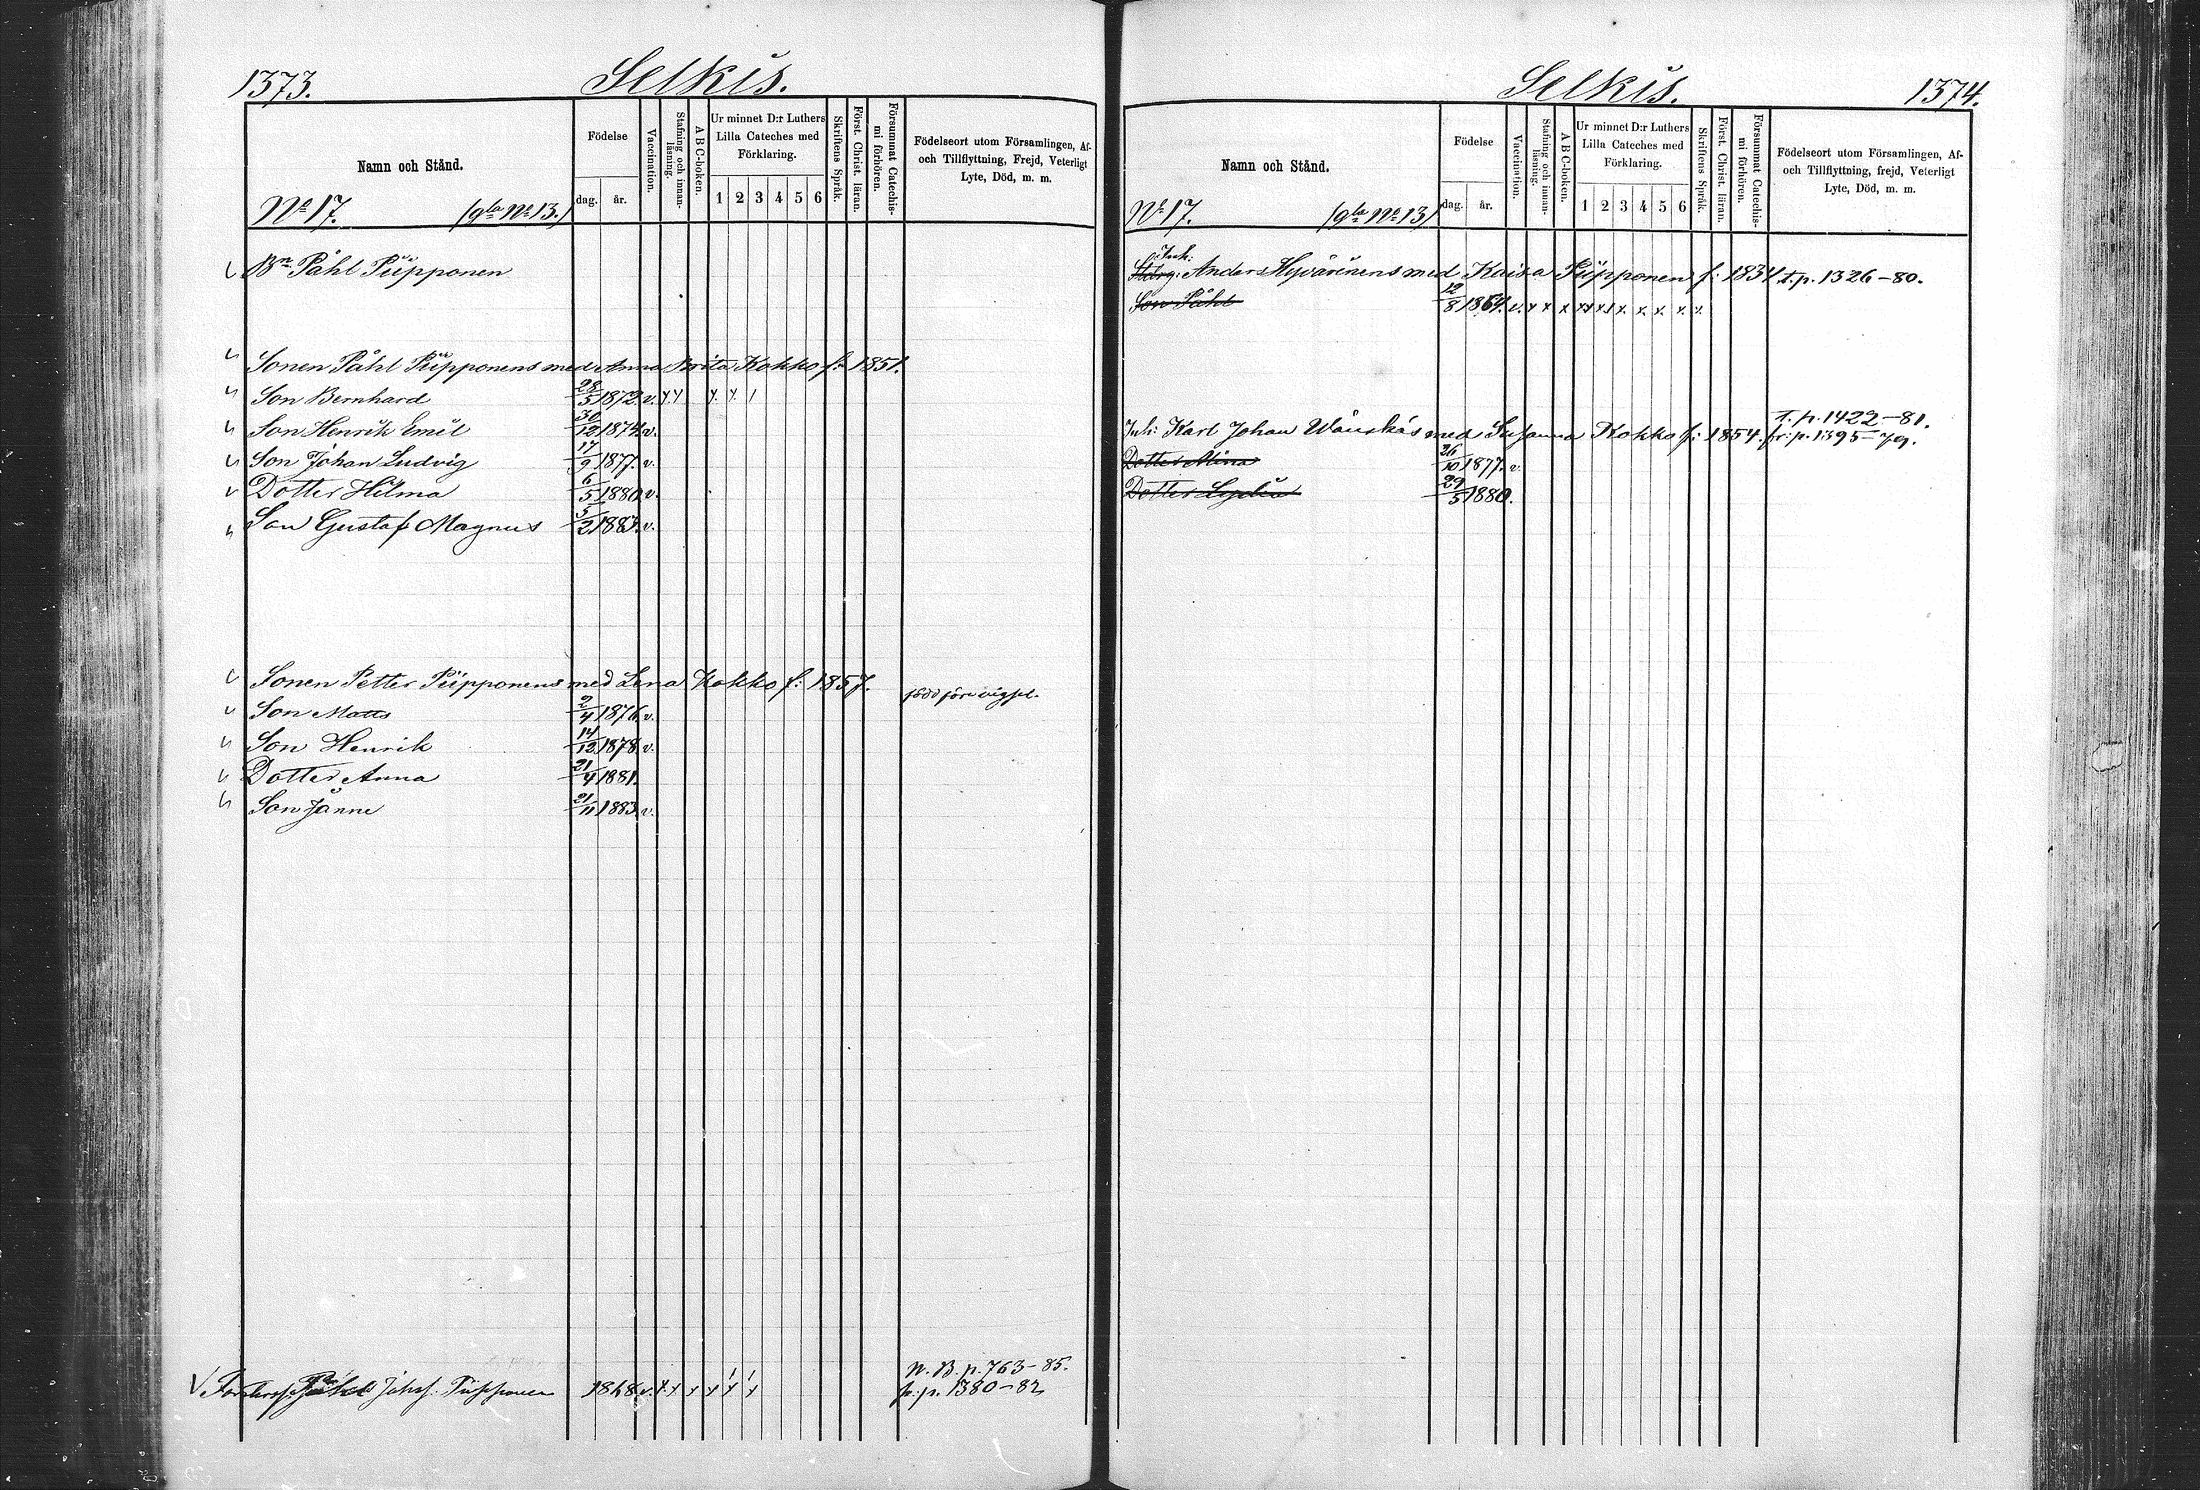 1373.
Selkis.
Namn och Stånd.
Födelse
dag. år.
Vaccination.
Stafning och innanläsning.
A B C-boken.
Ur minnet D:r Luthers
Lilla Cateches med
Förklaring.
1 2 3 4 5 6
Skriftens Språk.
Först. Christ. läran.
Försummat Catechismi förhören.
Födelseort utom Församlingen, Af-
och Tillflyttning, Frejd, Veterligt
Lyte, Död, m. m.
No 17. (gla No 13.)
Bn Påhl Piipponen
Sonen Påhl Piipponens med Anna Brita Kokko f: 1851.
Son Bernhard 28/5 1872. v. x x x x /
Son Henrik Emil 30/12 1874. v.
Son Johan Ludvig 17/9 1877. v.
Dotter Hilma 6/5 1880. v.
Son Gustaf Magnus 5/2 1883. v.
Sonen Petter Piipponens med Lena Kokko f: 1857.
född före vigsel.
Son Matts 2/4 1876. v.
Son Henrik 14/12 1878. v.
Dotter Anna 21/4 1881.
Son Janne 21/11 1883. v.
N. B. p. 763-85.
Johss. Piipponen 1848 v. x x x x x x fr. p. 1380-82
Selkis.
1374.
Namn och Stånd.
Födelse
dag. år.
Vaccination.
Stafning och innanläsning.
A B C-boken.
Ur minnet D:r Luthers
Lilla Cateches med
Förklaring.
1 2 3 4 5 6
Skriftens Språk.
Först. Christ. läran.
Försummat Catechismi förhören.
Födelseort utom Församlingen, Af-
och Tillflyttning, frejd, Veterligt
Lyte, Död, m. m.
No 17. (gla No 13)
Inh:
Anders Hyvärinens med Kaisa Piipponen f: 1834 t. p. 1326-80.
Son Påhl 12/8 1864. v. x x x x x x x x x x
t. p. 1422-81.
Inh: Karl Johan Wänskäs med Susanna Kokko f: 1854. fr: p. 1395-79.
Dotter Mina 26/10 1877. v.
Dotter Lydia 29/5 1880.